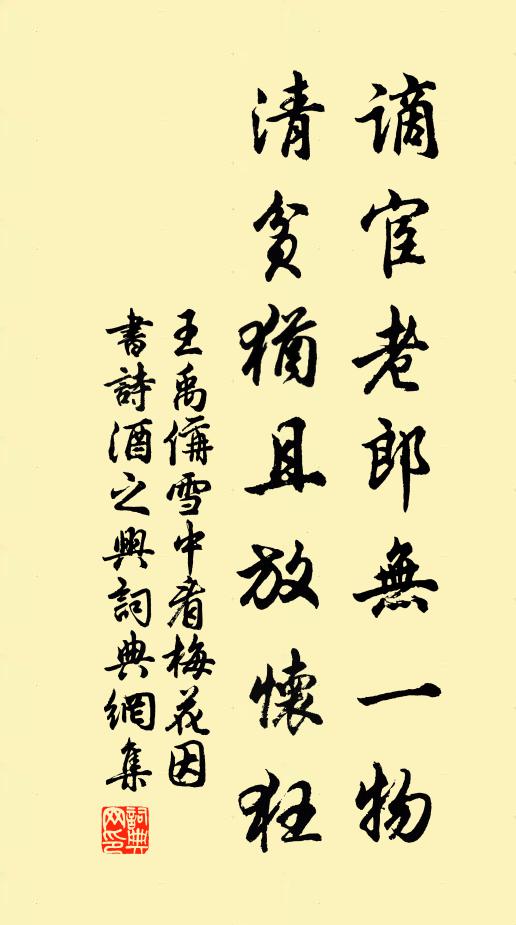 謫宦老郎無一物
清貧猶且放懷狂
王禹偁雪中看梅花因
書詩酒之興詞典網集
詞典網印